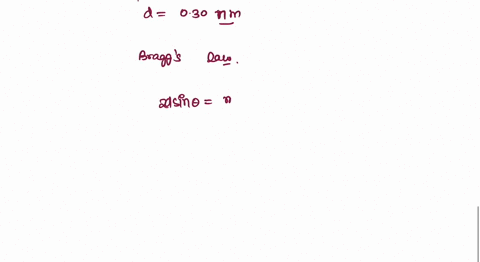 d = 0.30 nm
Bragg's Law.
2dsinθ = n